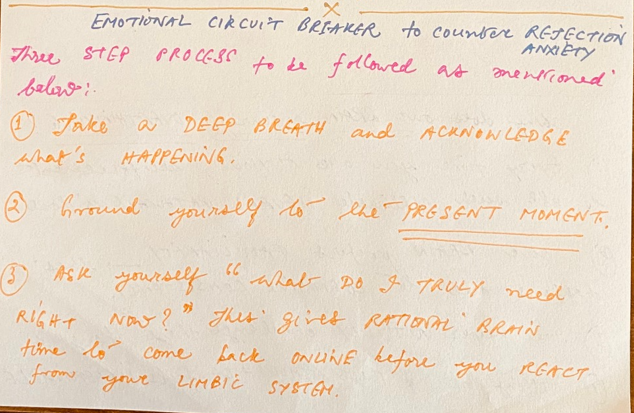 EMOTIONAL CIRCUIT BREAKER to counter REJECTION
ANXIETY
Three STEP PROCESS to be followed as mentioned
below:
① Take a DEEP BREATH and ACKNOWLEDGE
what's HAPPENING.
② Ground yourself to the PRESENT MOMENT.
③ ASK yourself "what DO I TRULY need
RIGHT NOW?" This gives RATIONAL BRAIN
time to come back ONLINE before you REACT
from your LIMBIC SYSTEM.